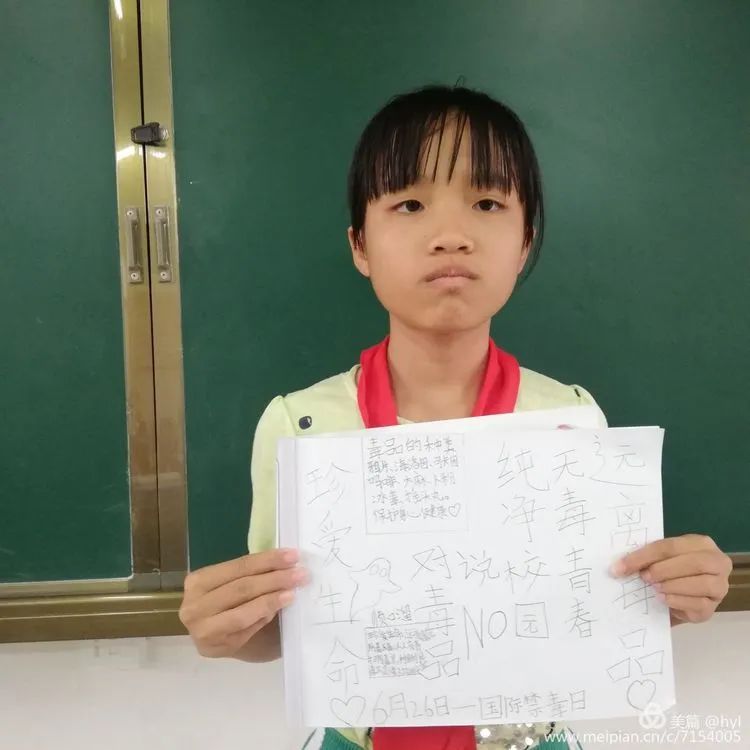 珍爱生命
毒品的种类
鸦片、海洛因、可卡因
吗啡、大麻、
冰毒、摇头丸。
保护身心健康♡
纯净校园
无毒青春
远离毒品
对毒品说NO
顺口溜
6月26日—国际禁毒日
美篇 @hyl
www.meipian.cn/c/7154005